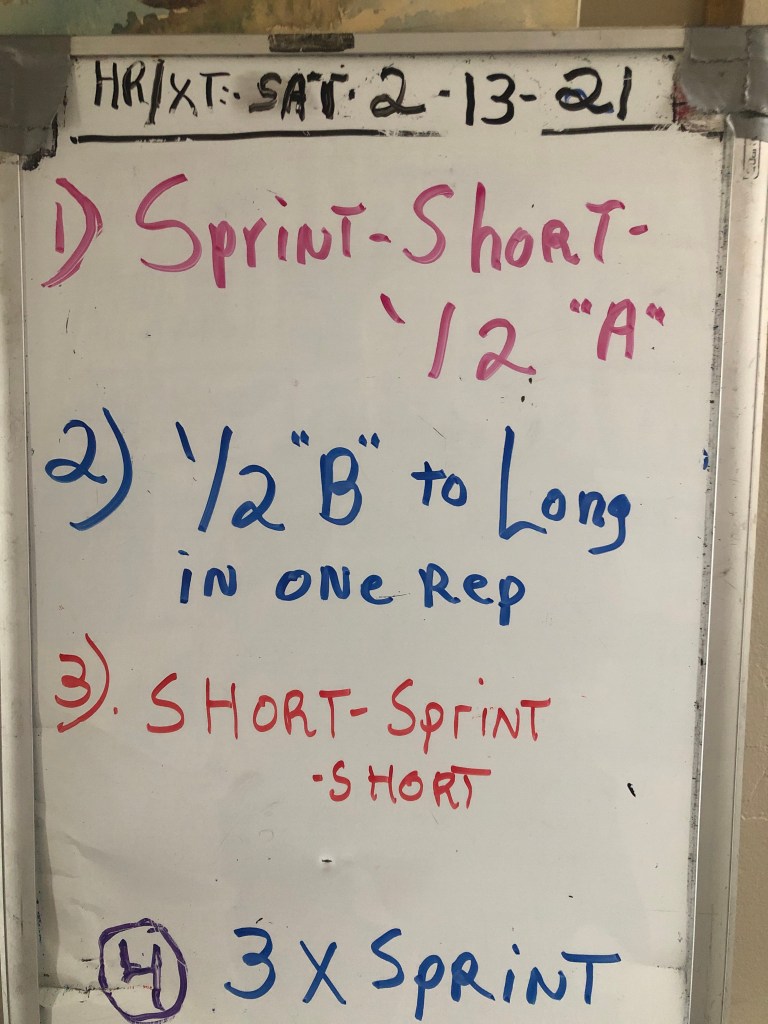 HR/XT: SAT. 2-13-21
1) Sprint-Short-
1/2 "A"
2) 1/2 "B" to Long
in one Rep
3). SHORT-Sprint
-SHORT
4 3 X SPRINT